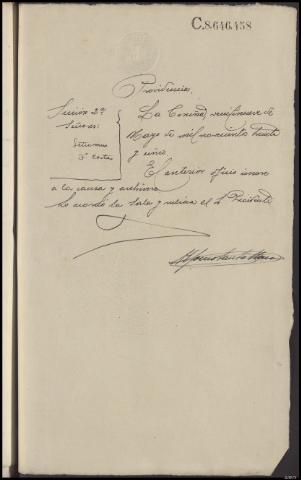 C.8.646.458
Providencia.
Sección 2ª
Señores:
La Coruña, veintinueve de
Mayo de mil novecientos treinta
y uno.
El anterior oficio únase
a la causa y archívese
Lo acordó la Sala y rubrica el Sr Presidente